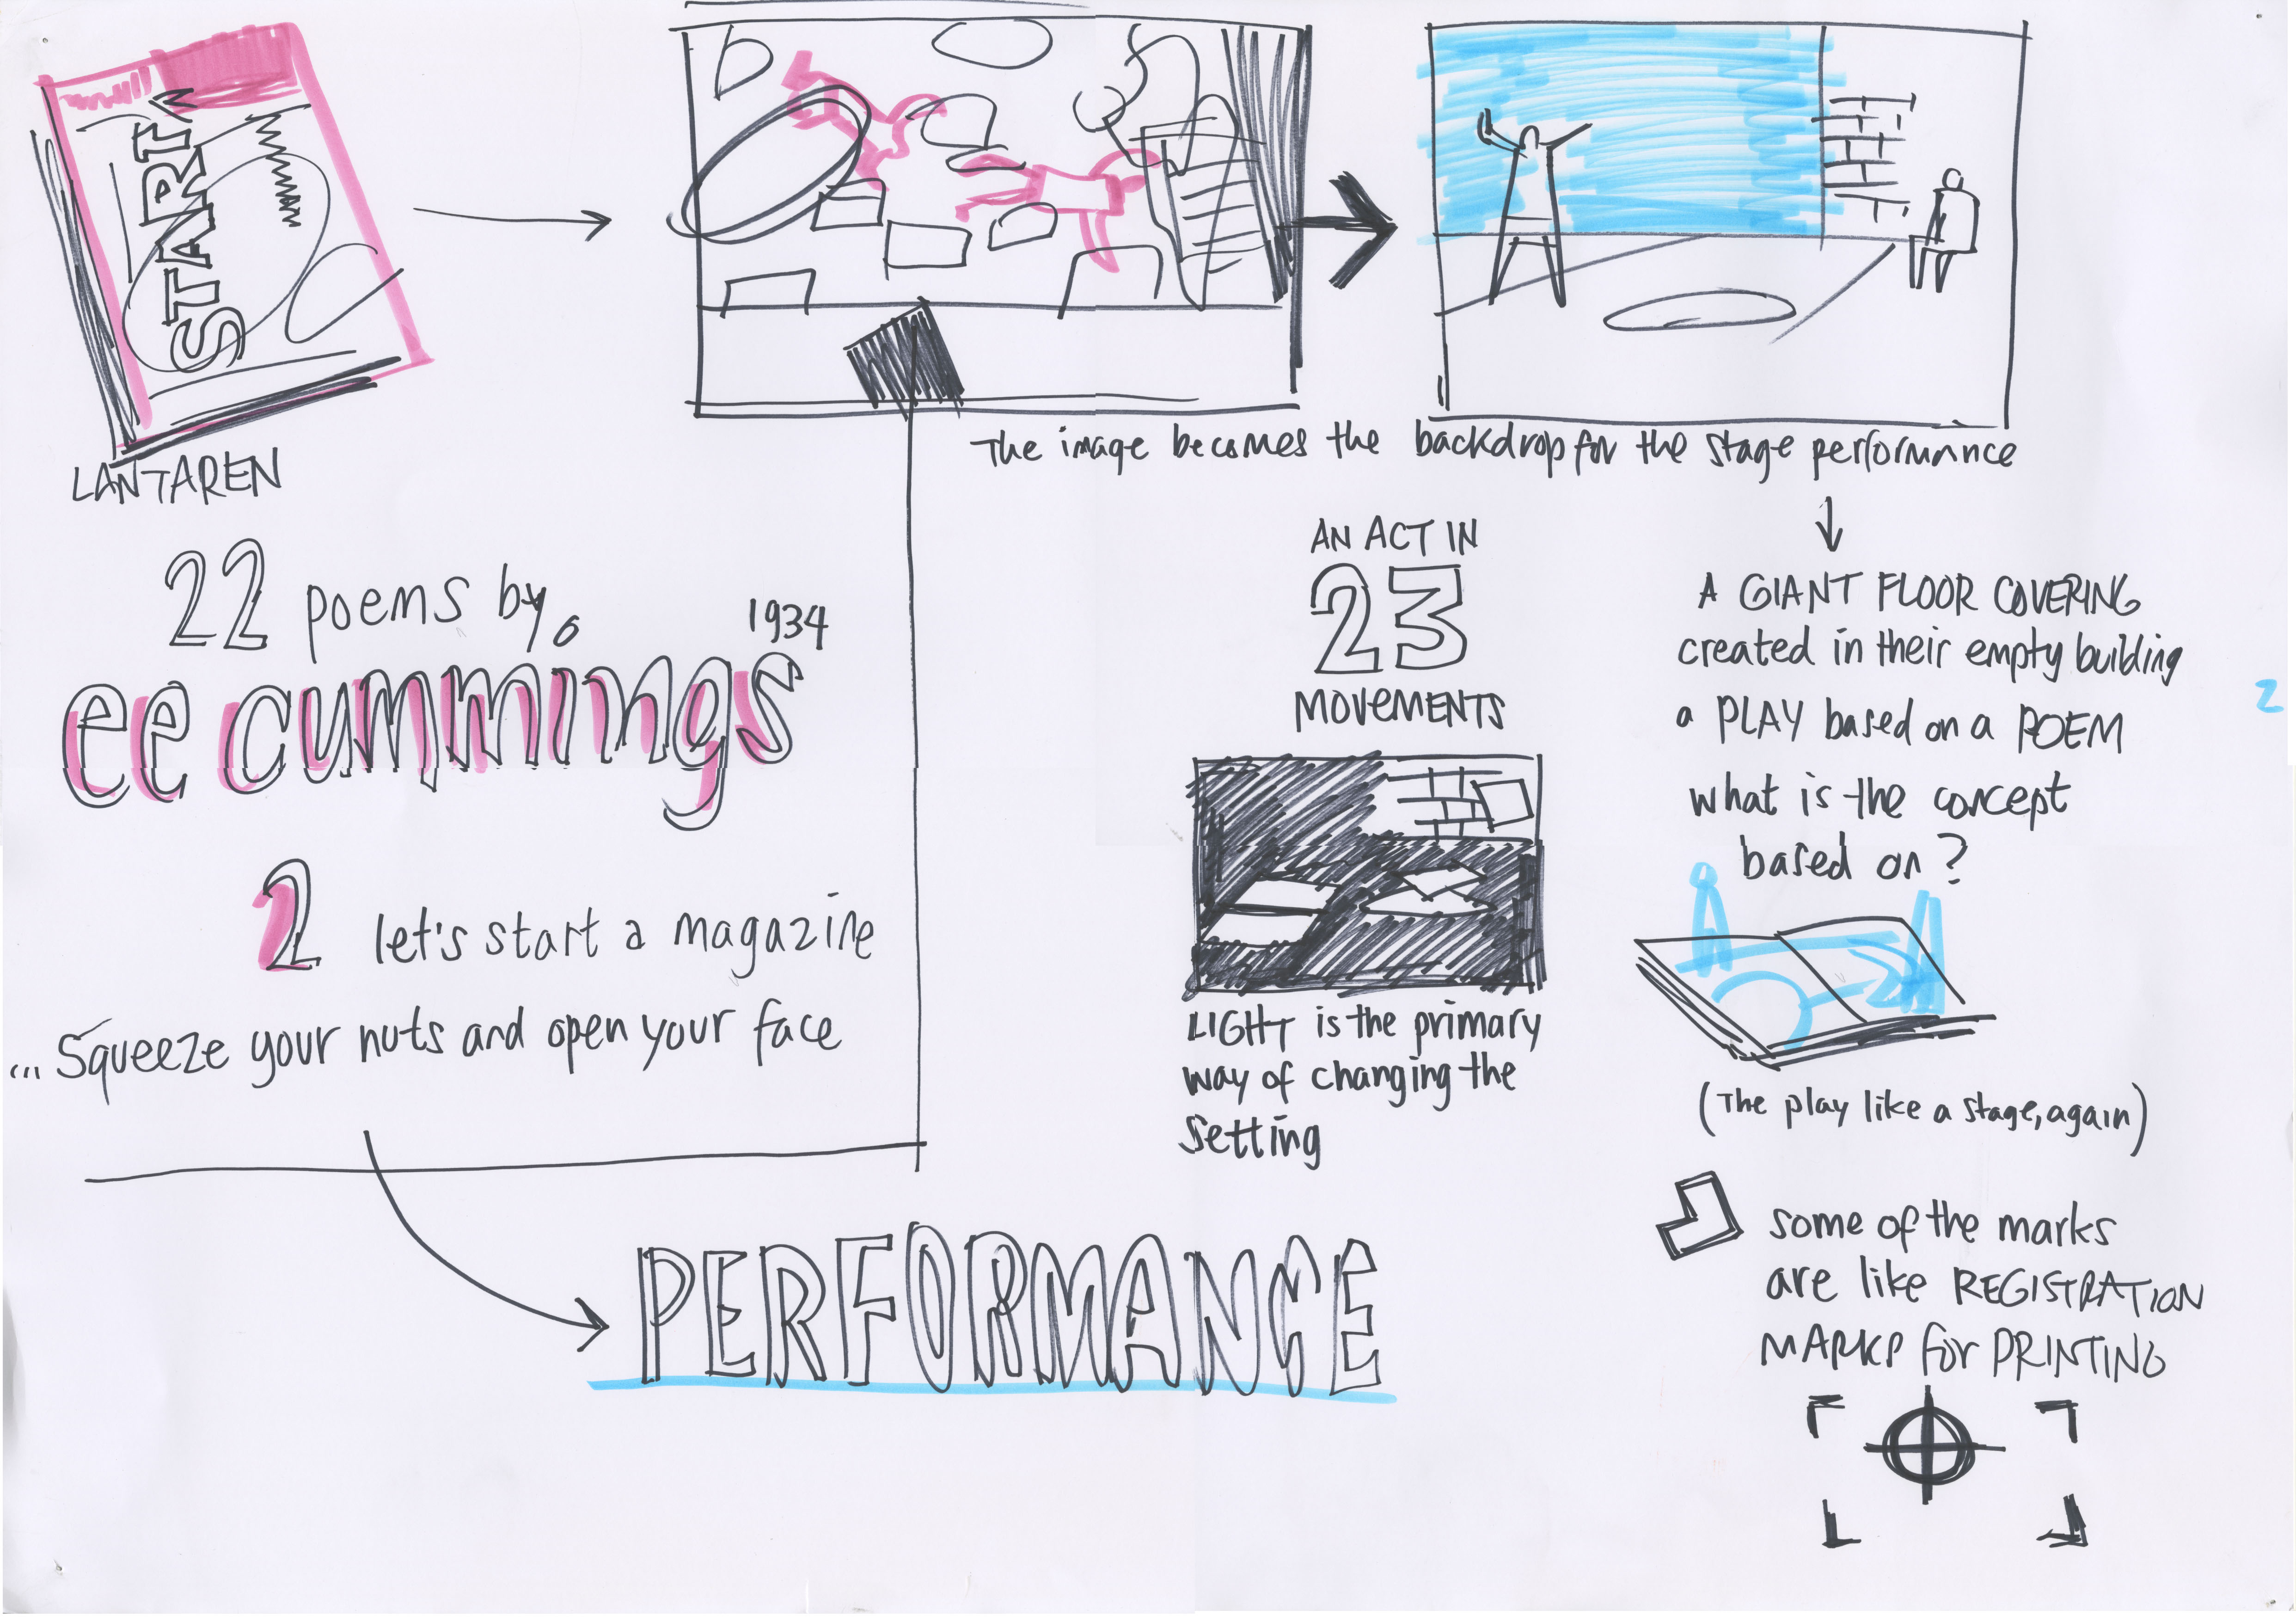 START
LANTAREN
22 poems by
1934
ee cummings
2 let's start a magazine
... Squeeze your nuts and open your face
PERFORMANCE
The image becomes the backdrop for the stage performance
AN ACT IN
23
MOVEMENTS
LIGHT is the primary
way of changing the
setting
A GIANT FLOOR COVERING
created in their empty building
a PLAY based on a POEM
what is the concept
based on?
(The play like a stage, again)
some of the marks
are like REGISTRATION
MARKS for PRINTING
2